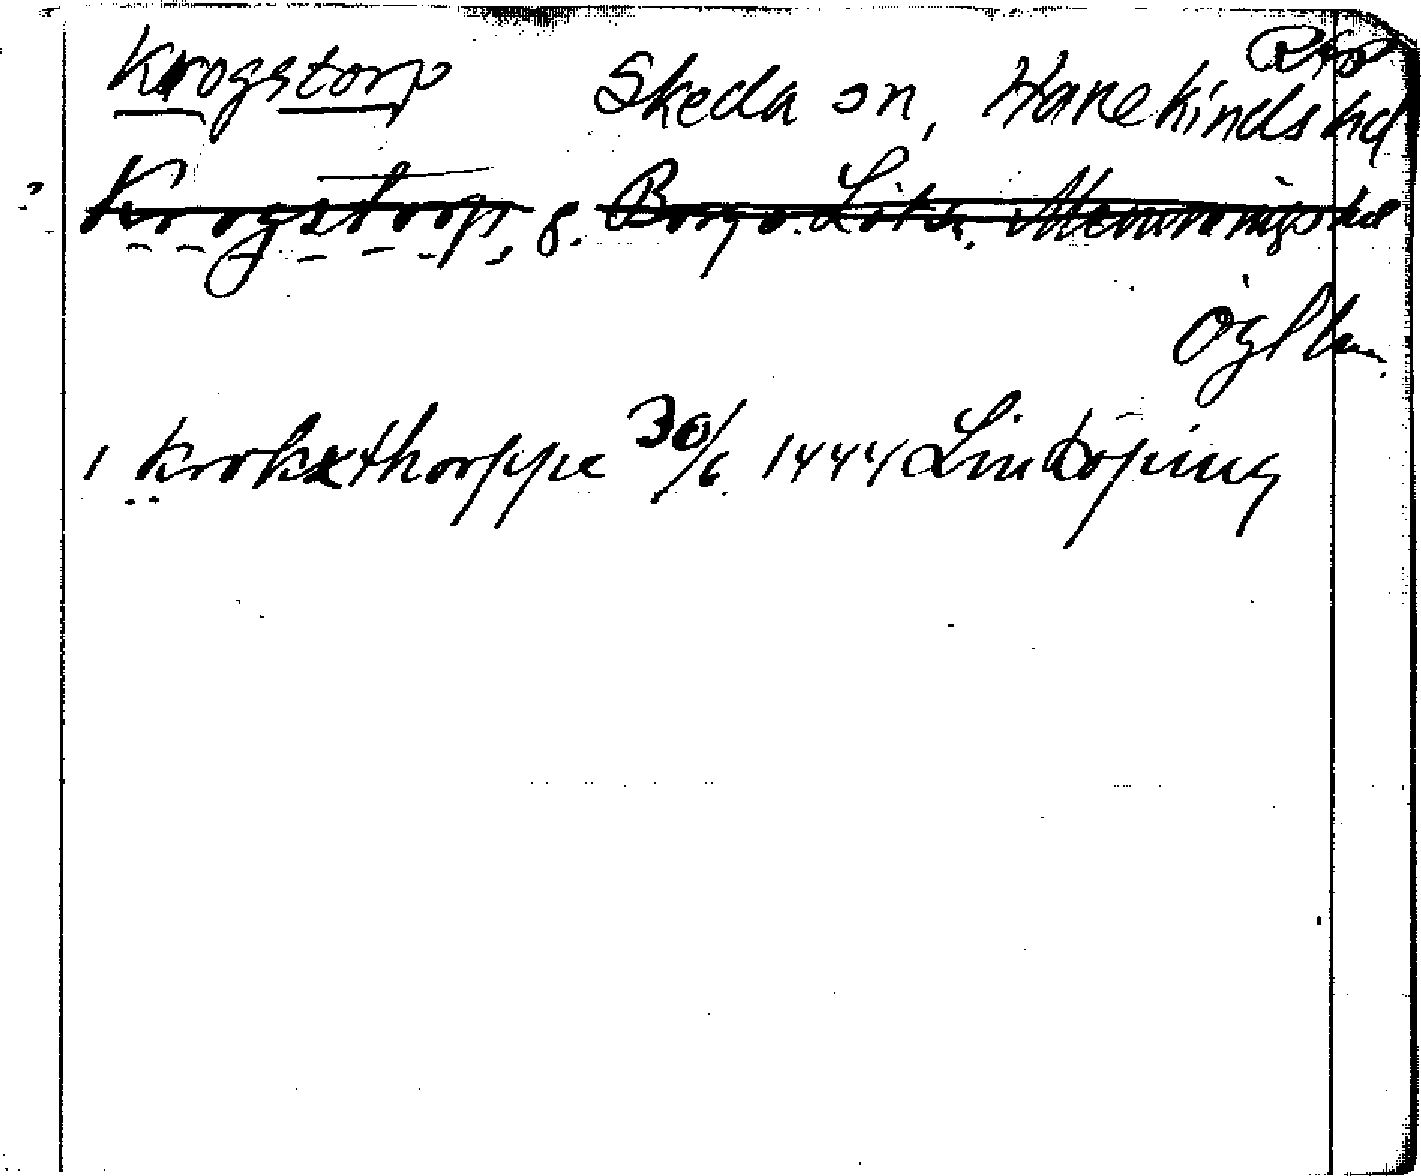 Rap
Krogstorp Skeda sn, Hanekinds hd
Krogstorp, g. Borgs Lösen. Memmings hd
Ögl ln.
1 krokxthorppe 30/6 1444 Linköping